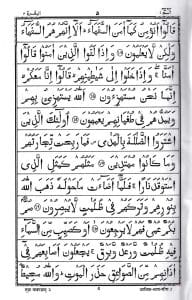 قَالُوْٓا اَنُؤْمِنُ كَمَآ اٰمَنَ السُّفَهَآءُ ؕ اَلَآ اِنَّهُمْ هُمُ السُّفَهَآءُ
وَلٰكِنْ لَّا يَعْلَمُوْنَ ۝ وَاِذَا لَقُوا الَّذِيْنَ اٰمَنُوْا قَالُوْٓا
اٰمَنَّا ۚ وَاِذَا خَلَوْا اِلٰى شَيٰطِيْنِهِمْ ۙ قَالُوْٓا اِنَّا مَعَكُمْ ۙ
اِنَّمَا نَحْنُ مُسْتَهْزِءُوْنَ ۝ اَللّٰهُ يَسْتَهْزِئُ بِهِمْ
وَيَمُدُّهُمْ فِيْ طُغْيَانِهِمْ يَعْمَهُوْنَ ۝ اُولٰٓئِكَ الَّذِيْنَ
اشْتَرَوُا الضَّلٰلَةَ بِالْهُدٰى ۪ فَمَا رَبِحَتْ تِّجَارَتُهُمْ
وَمَا كَانُوْا مُهْتَدِيْنَ ۝ مَثَلُهُمْ كَمَثَلِ الَّذِى
اسْتَوْقَدَ نَارًا ۚ فَلَمَّآ اَضَآءَتْ مَا حَوْلَهٗ ذَهَبَ اللّٰهُ
بِنُوْرِهِمْ وَتَرَكَهُمْ فِيْ ظُلُمٰتٍ لَّا يُبْصِرُوْنَ ۝ صُمٌّۢ
بُكْمٌ عُمْيٌ فَهُمْ لَا يَرْجِعُوْنَ ۝ اَوْ كَصَيِّبٍ مِّنَ السَّمَآءِ
فِيْهِ ظُلُمٰتٌ وَّرَعْدٌ وَّبَرْقٌ ۚ يَجْعَلُوْنَ اَصَابِعَهُمْ فِيْٓ
اٰذَانِهِمْ مِّنَ الصَّوَاعِقِ حَذَرَ الْمَوْتِ ؕ وَاللّٰهُ مُحِيْطٌۢ